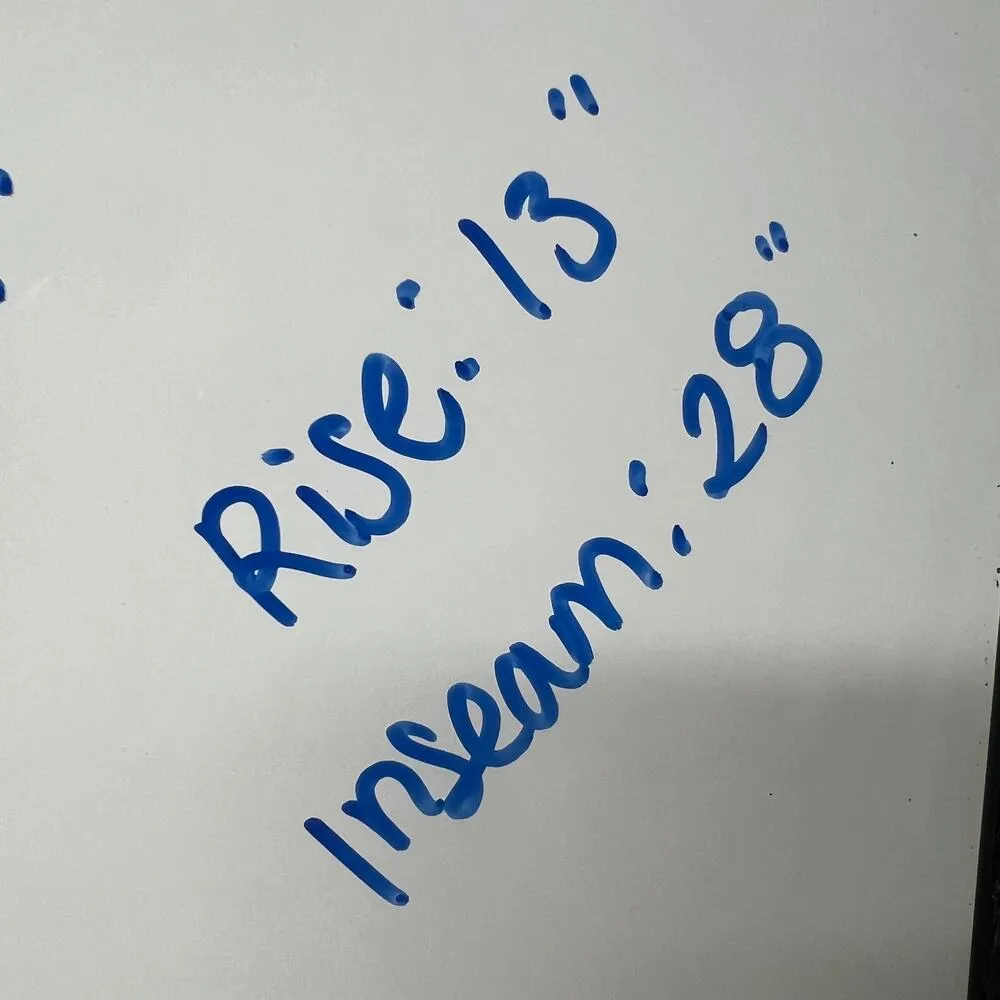 Rise: 13"
Inseam: 28"